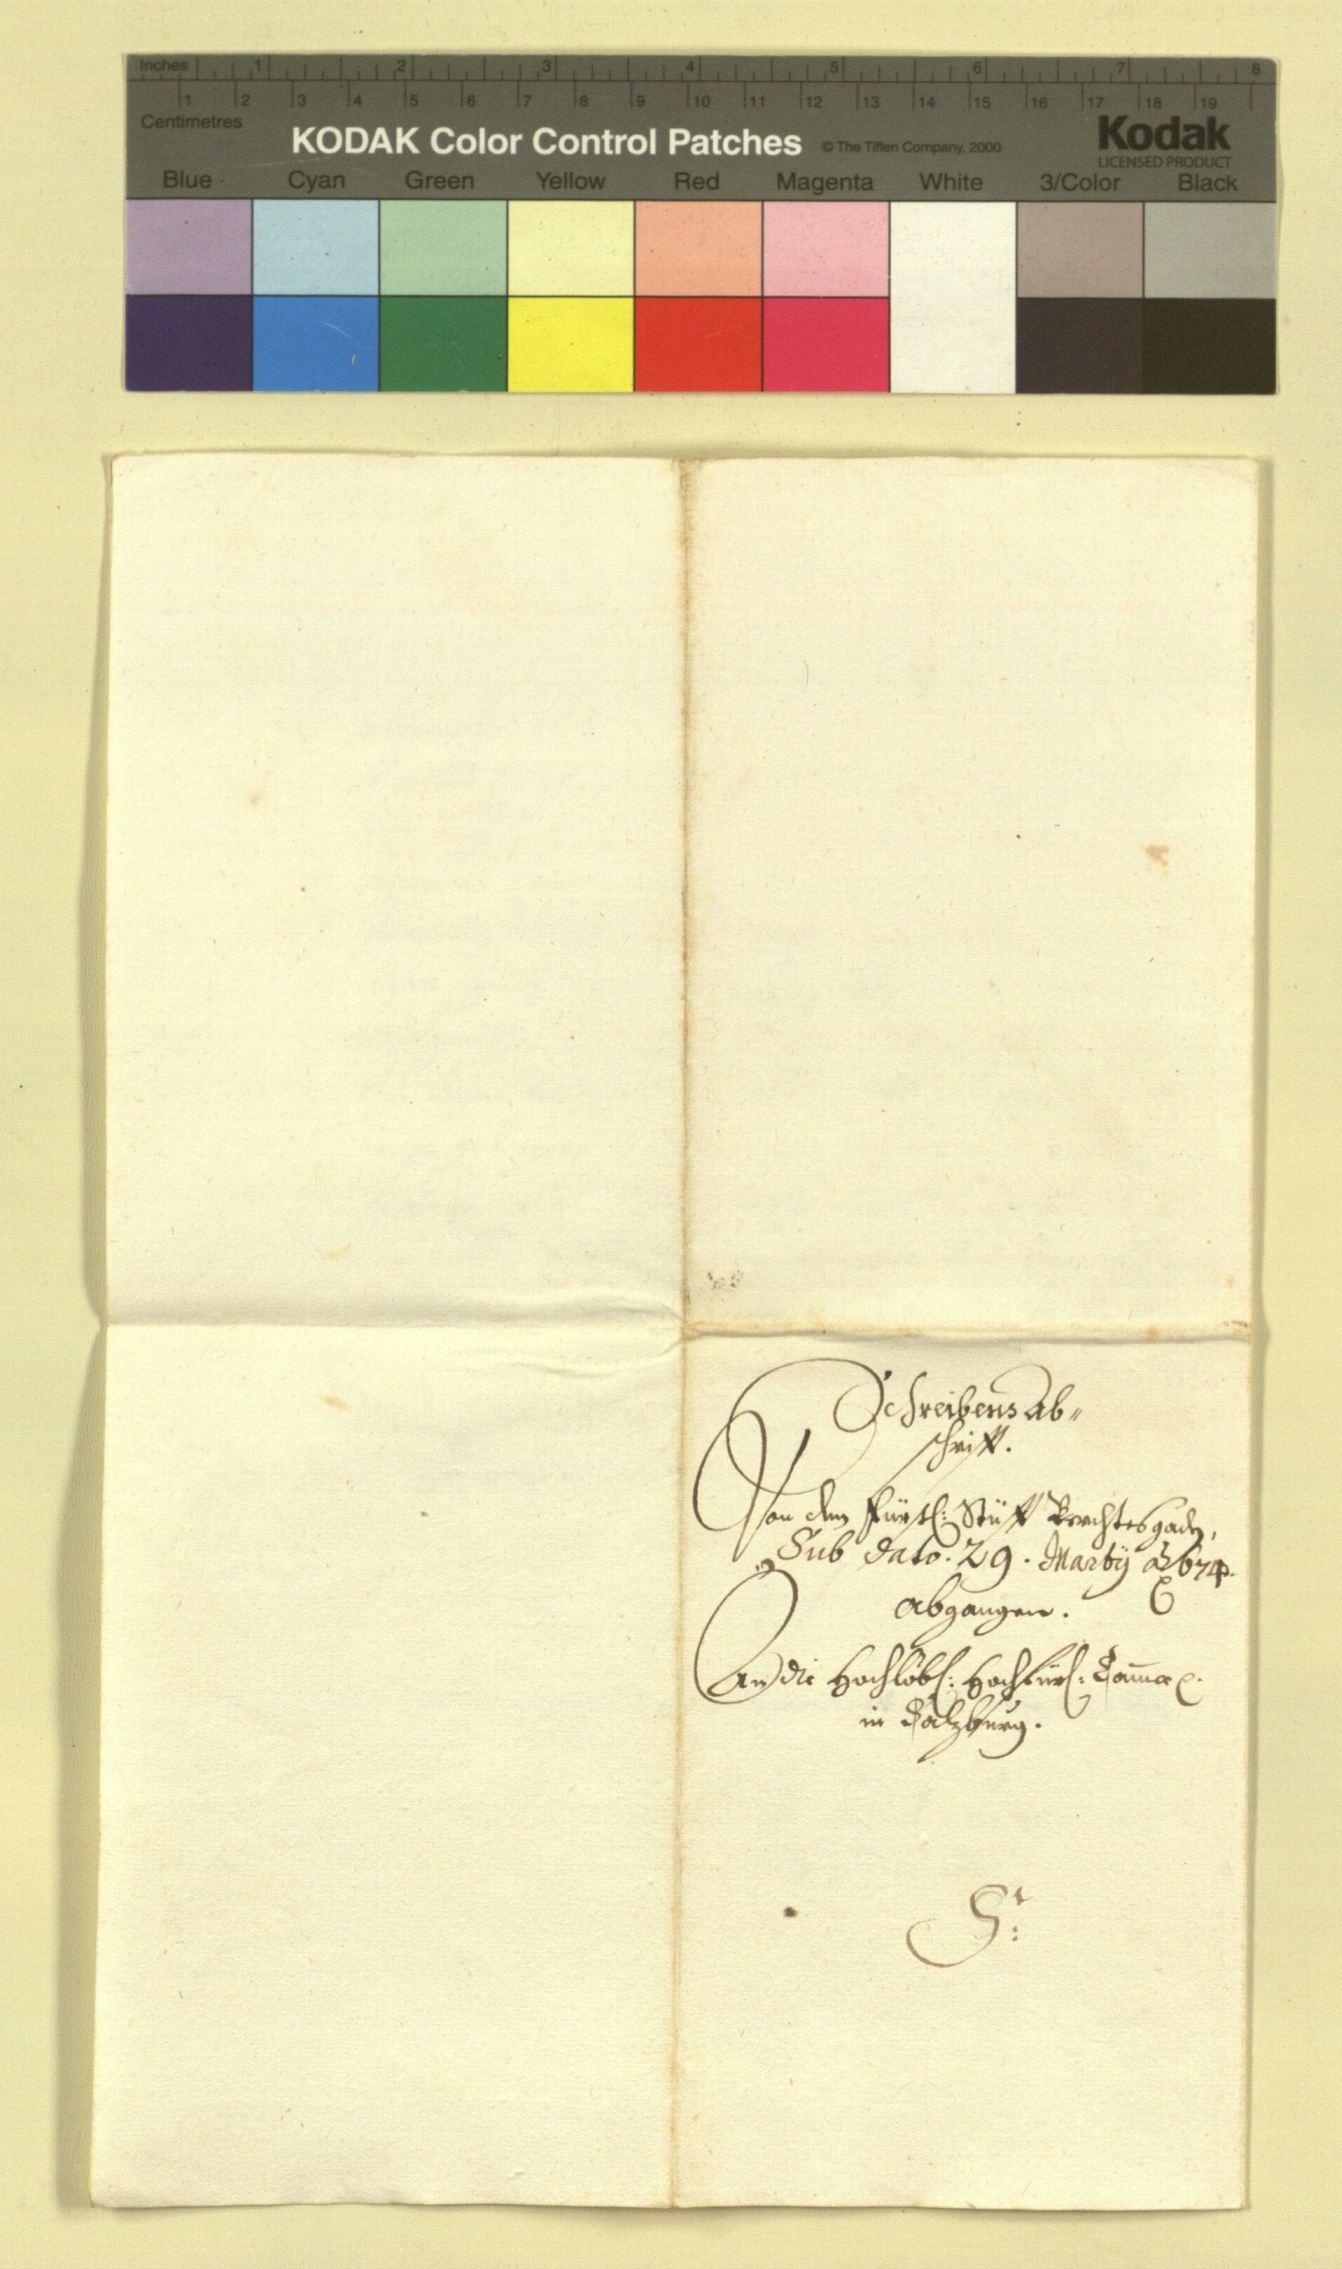 Inches 1 2 3 4 5 6 7 8
1 2 3 4 5 6 7 8 9 10 11 12 13 14 15 16 17 18 19
Centimetres
KODAK Color Control Patches © The Tiffen Company, 2000 Kodak
LICENSED PRODUCT
Blue Cyan Green Yellow Red Magenta White 3/Color Black
Schreibens Ab-
schrifft.
Von dem Fürstl: Stüfft Berchtesgaden,
Sub dato. 29. Marty aº 674.
abgangen.
An die Hochlöbl: Hochfürl:
in Salzburg.